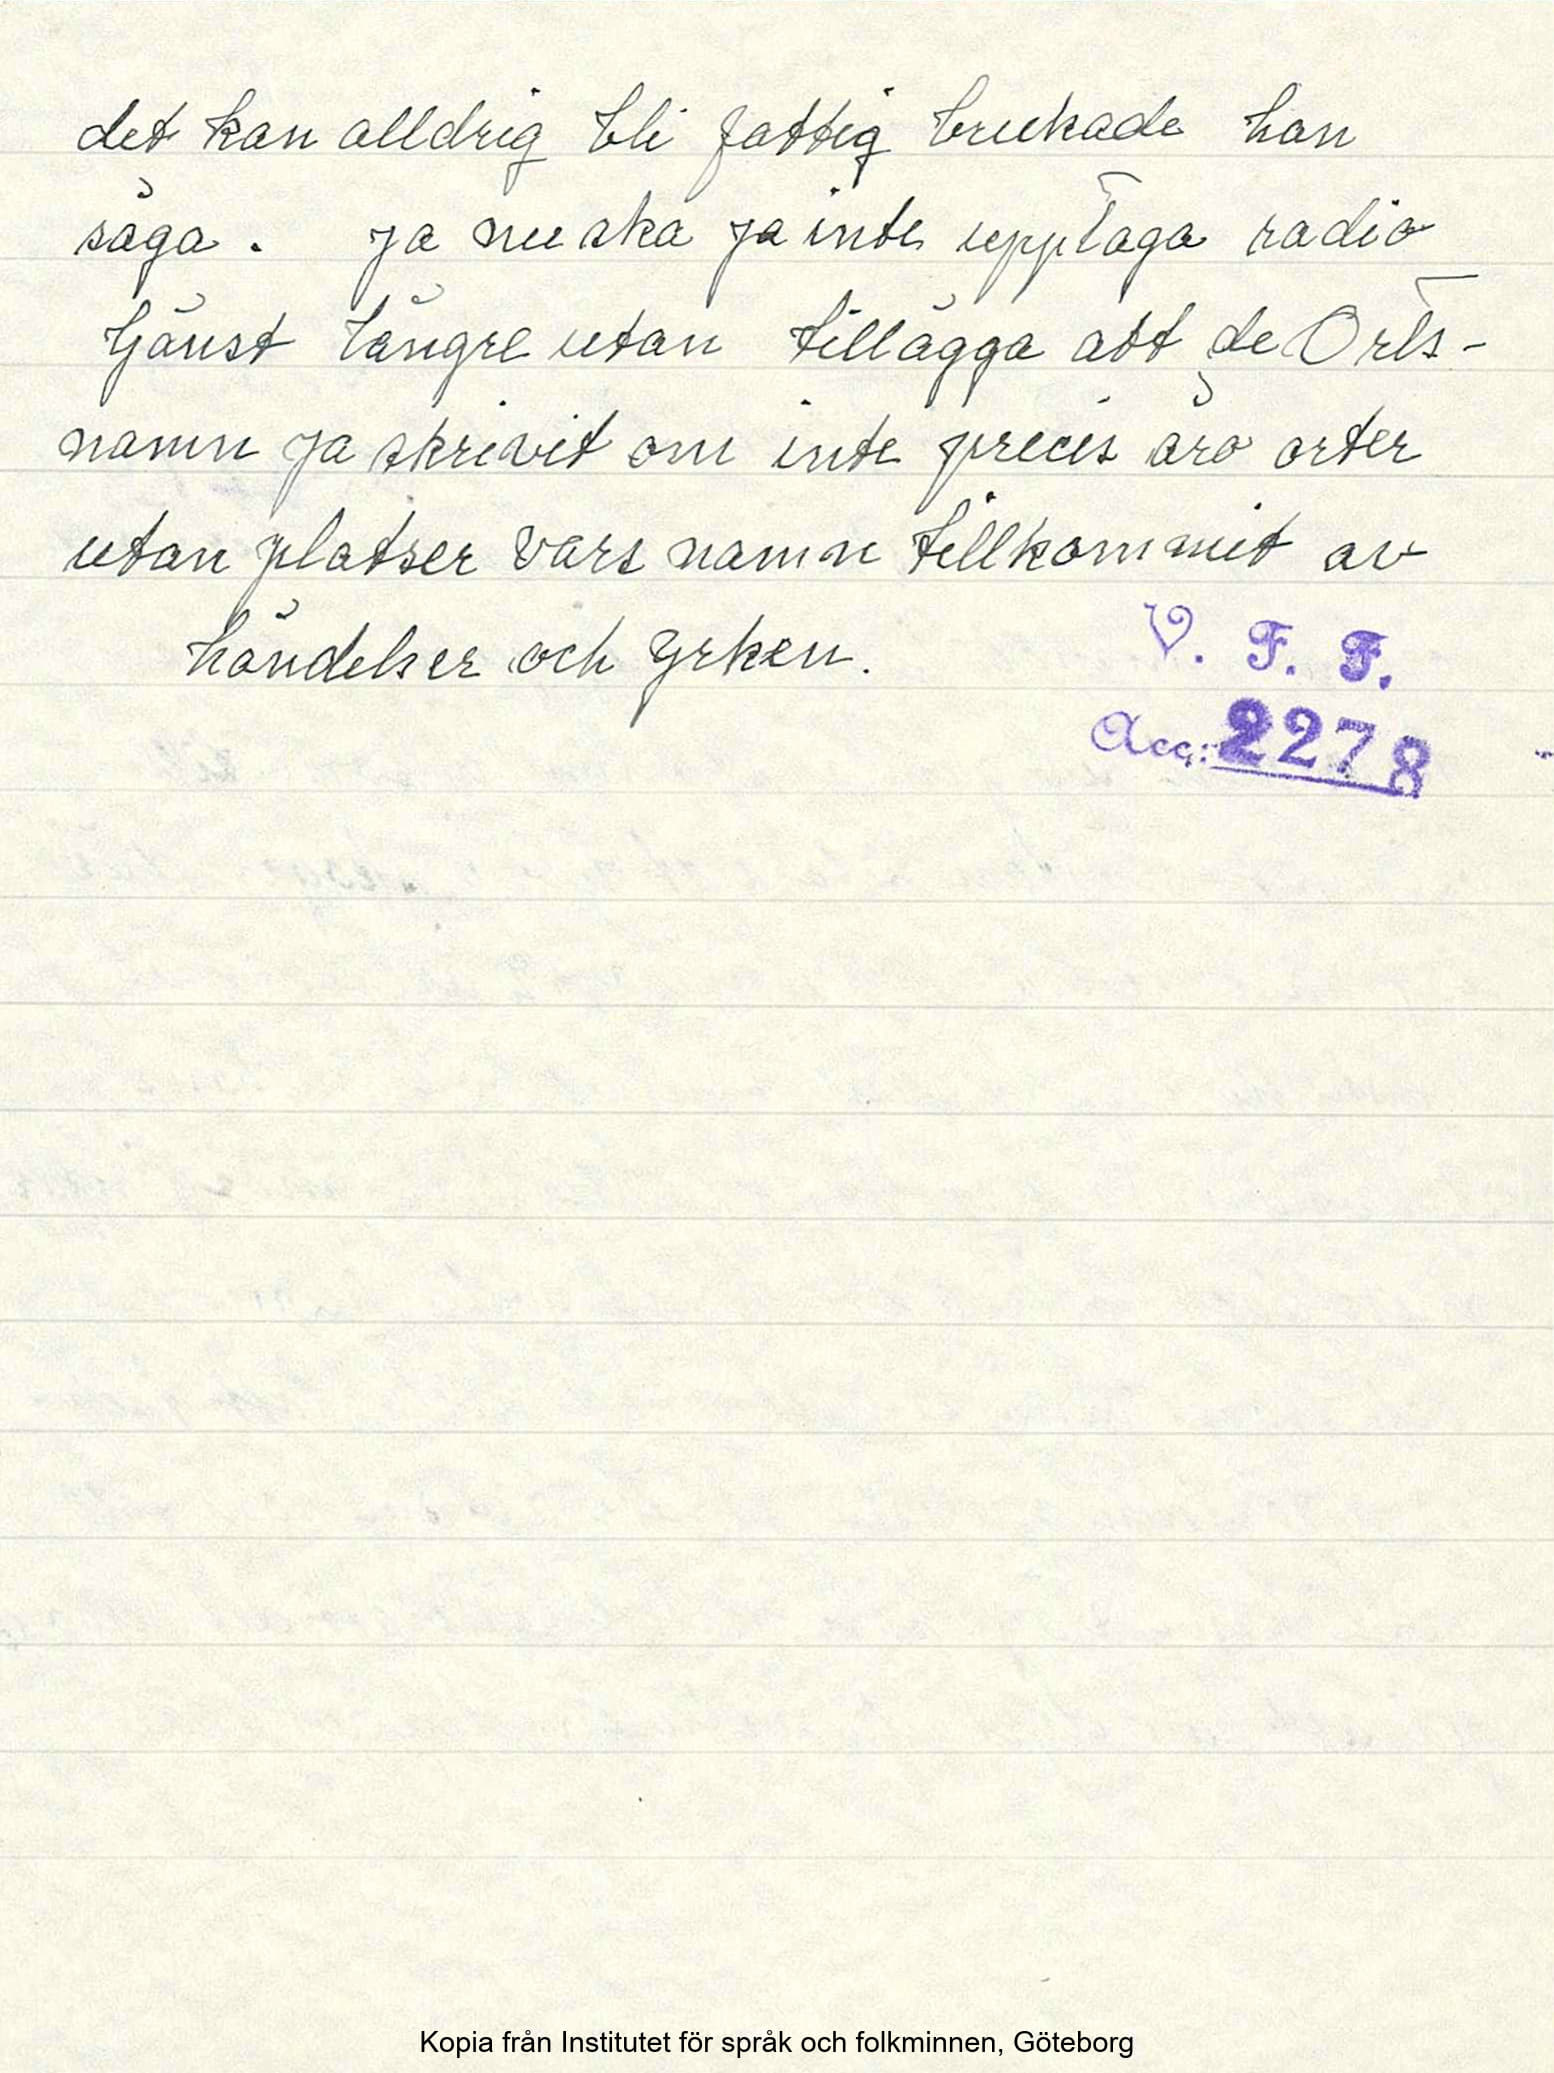 det kan alldrig bli fattig brukade han
säga. ja nu ska ja inte upptaga radio
tjänst längre utan tillägga att de Orts-
namn ja skrivit om inte precis äro orter
utan platser vars namn tillkommit av
händelser och yrken.
V. F. F.
Acc: 2278
Kopia från Institutet för språk och folkminnen, Göteborg